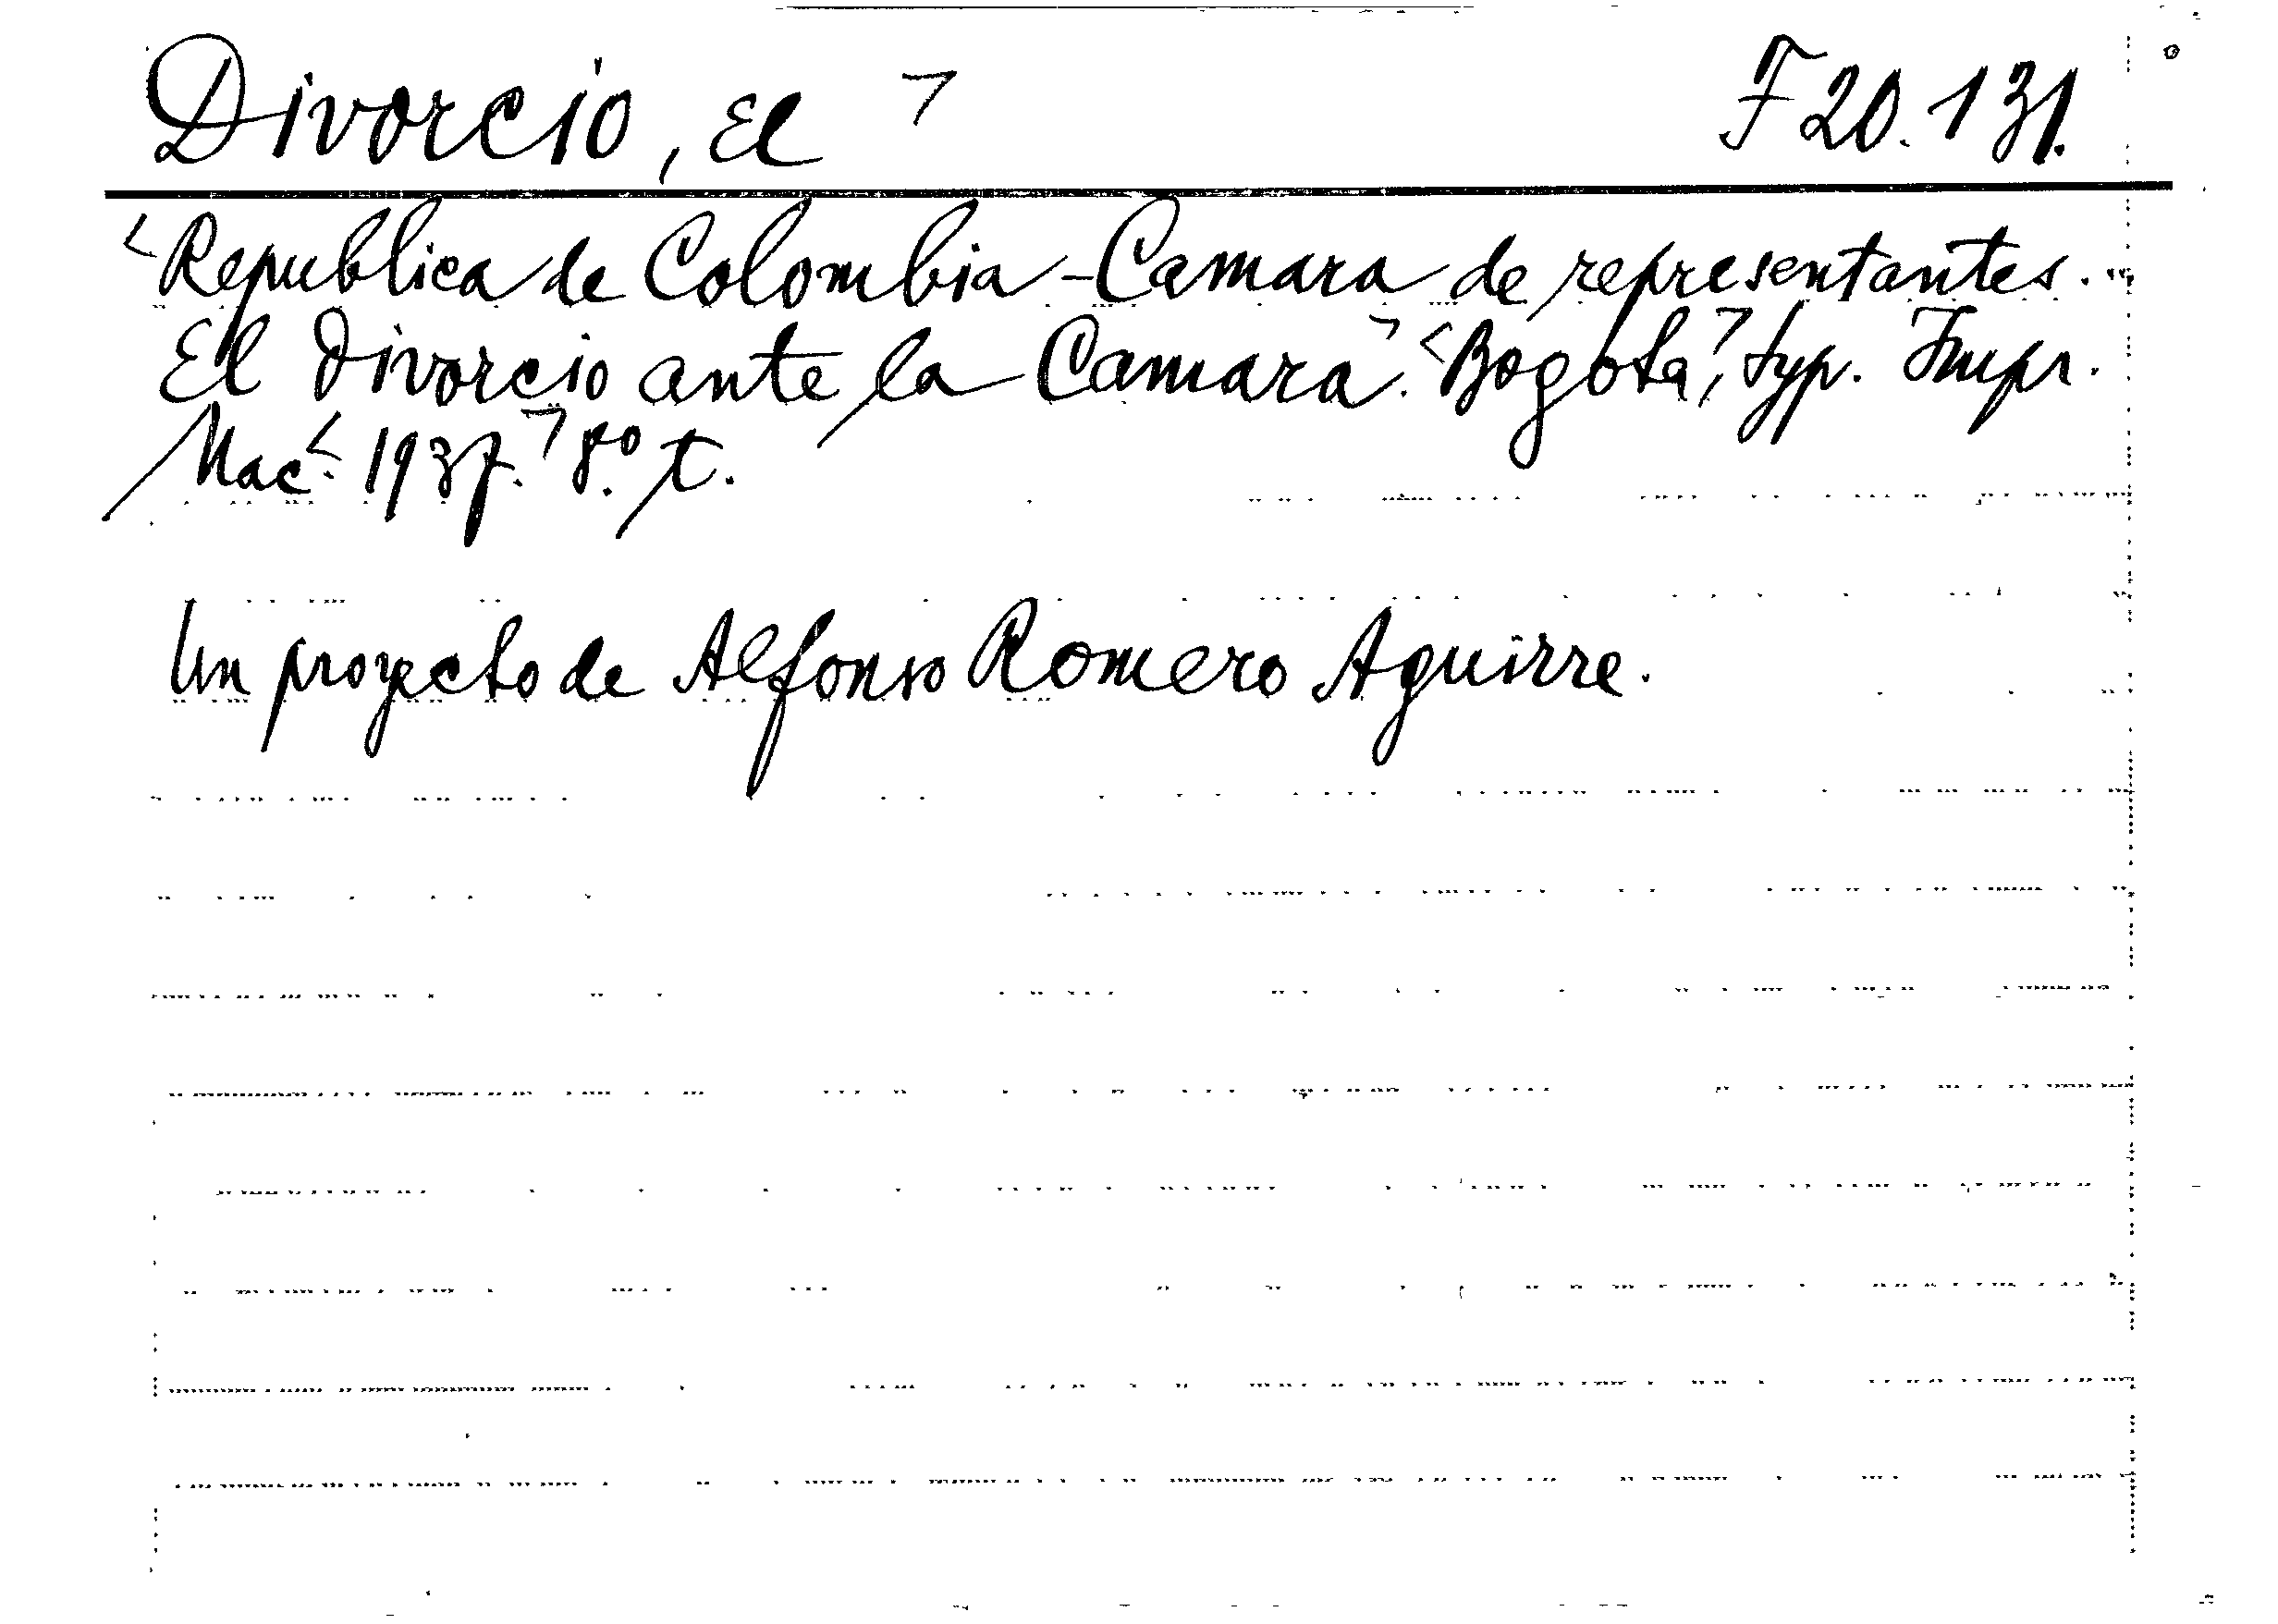 Divorcio, El ⁊ F 20.131.
<Republica de Colombia - Camara de representantes.
El Divorcio ante la Camara⁊. <Bogota,⁊ typ. Impr.
Nac.< 1937.⁊ 8.º t.
Un proyecto de Alfonso Romero Aguirre.